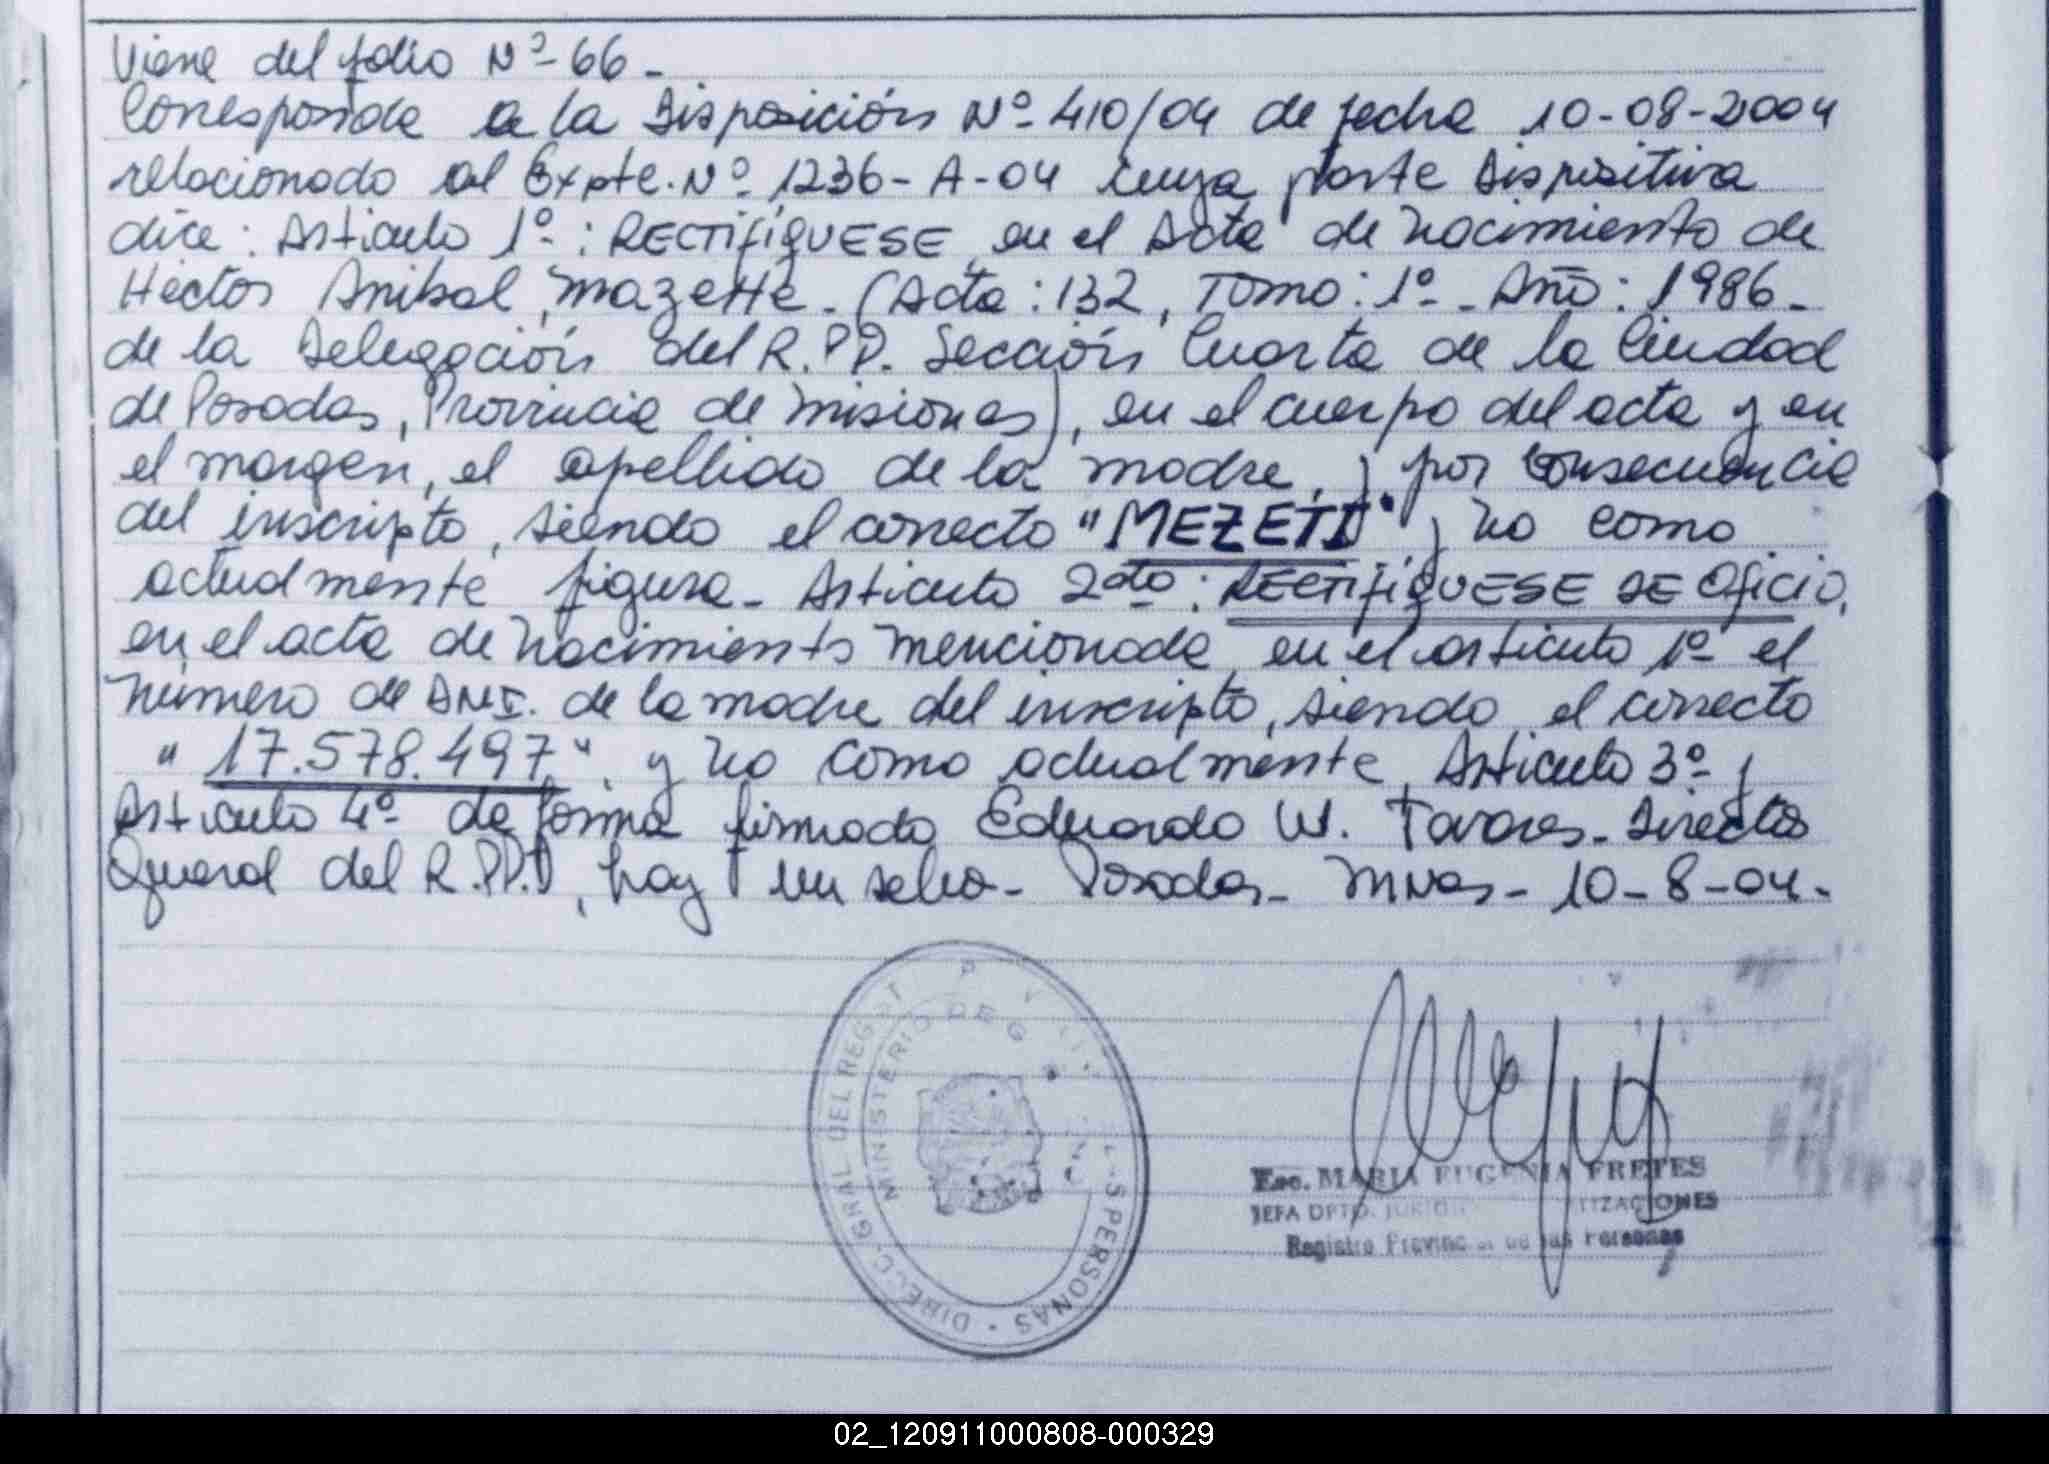 Viene del folio Nº-66-
Corresponde a la Disposición Nº 410/04 de fecha 10-08-2004
relacionado al Expte. Nº 1236-A-04 cuya parte dispositiva
dice: Articulo 1º: RECTIFIQUESE en el Acta de nacimiento de
Héctor Anibal, Mazette. (Acta: 132, Tomo: 1º- Año: 1986-
de la Delegación del R.PP. Sección Cuarta de la Ciudad
de Posadas, Provincia de Misiones), en el cuerpo del acta y en
el margen, el apellido de la madre, y por consecuencia
del inscripto, siendo el correcto "MEZETI" y no como
actualmente figura- Articulo 2do: RECTIFIQUESE DE Oficio,
en el acta de nacimiento mencionada en el articulo 1º el
número de DNI. de la madre del inscripto, siendo el correcto
"17.578.497", y no como actualmente, Articulo 3º y
Articulo 4º de forma firmado Eduardo W. Tavares- Director
General del R.PP., hay un sello- Posadas- Mnes- 10-8-04-
DIRECC. GRAL DEL REGIST P PERSONAS
MINISTERIO DE G
Esc. MARIA EUGENIA FRETES
JEFA DPTO.
Registro Provincial de las Personas
02_120911000808-000329